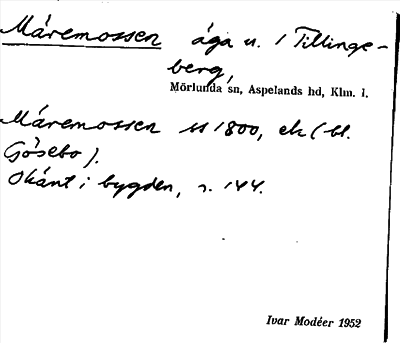 Máremossen äga u. / Tillinge-
berg,
Mörlunda sn, Aspelands hd, Klm. l.
Máremossen ss 1800, ek (bl.
Gösebo).
Okänt i bygden, s. 144.
Ivar Modéer 1952